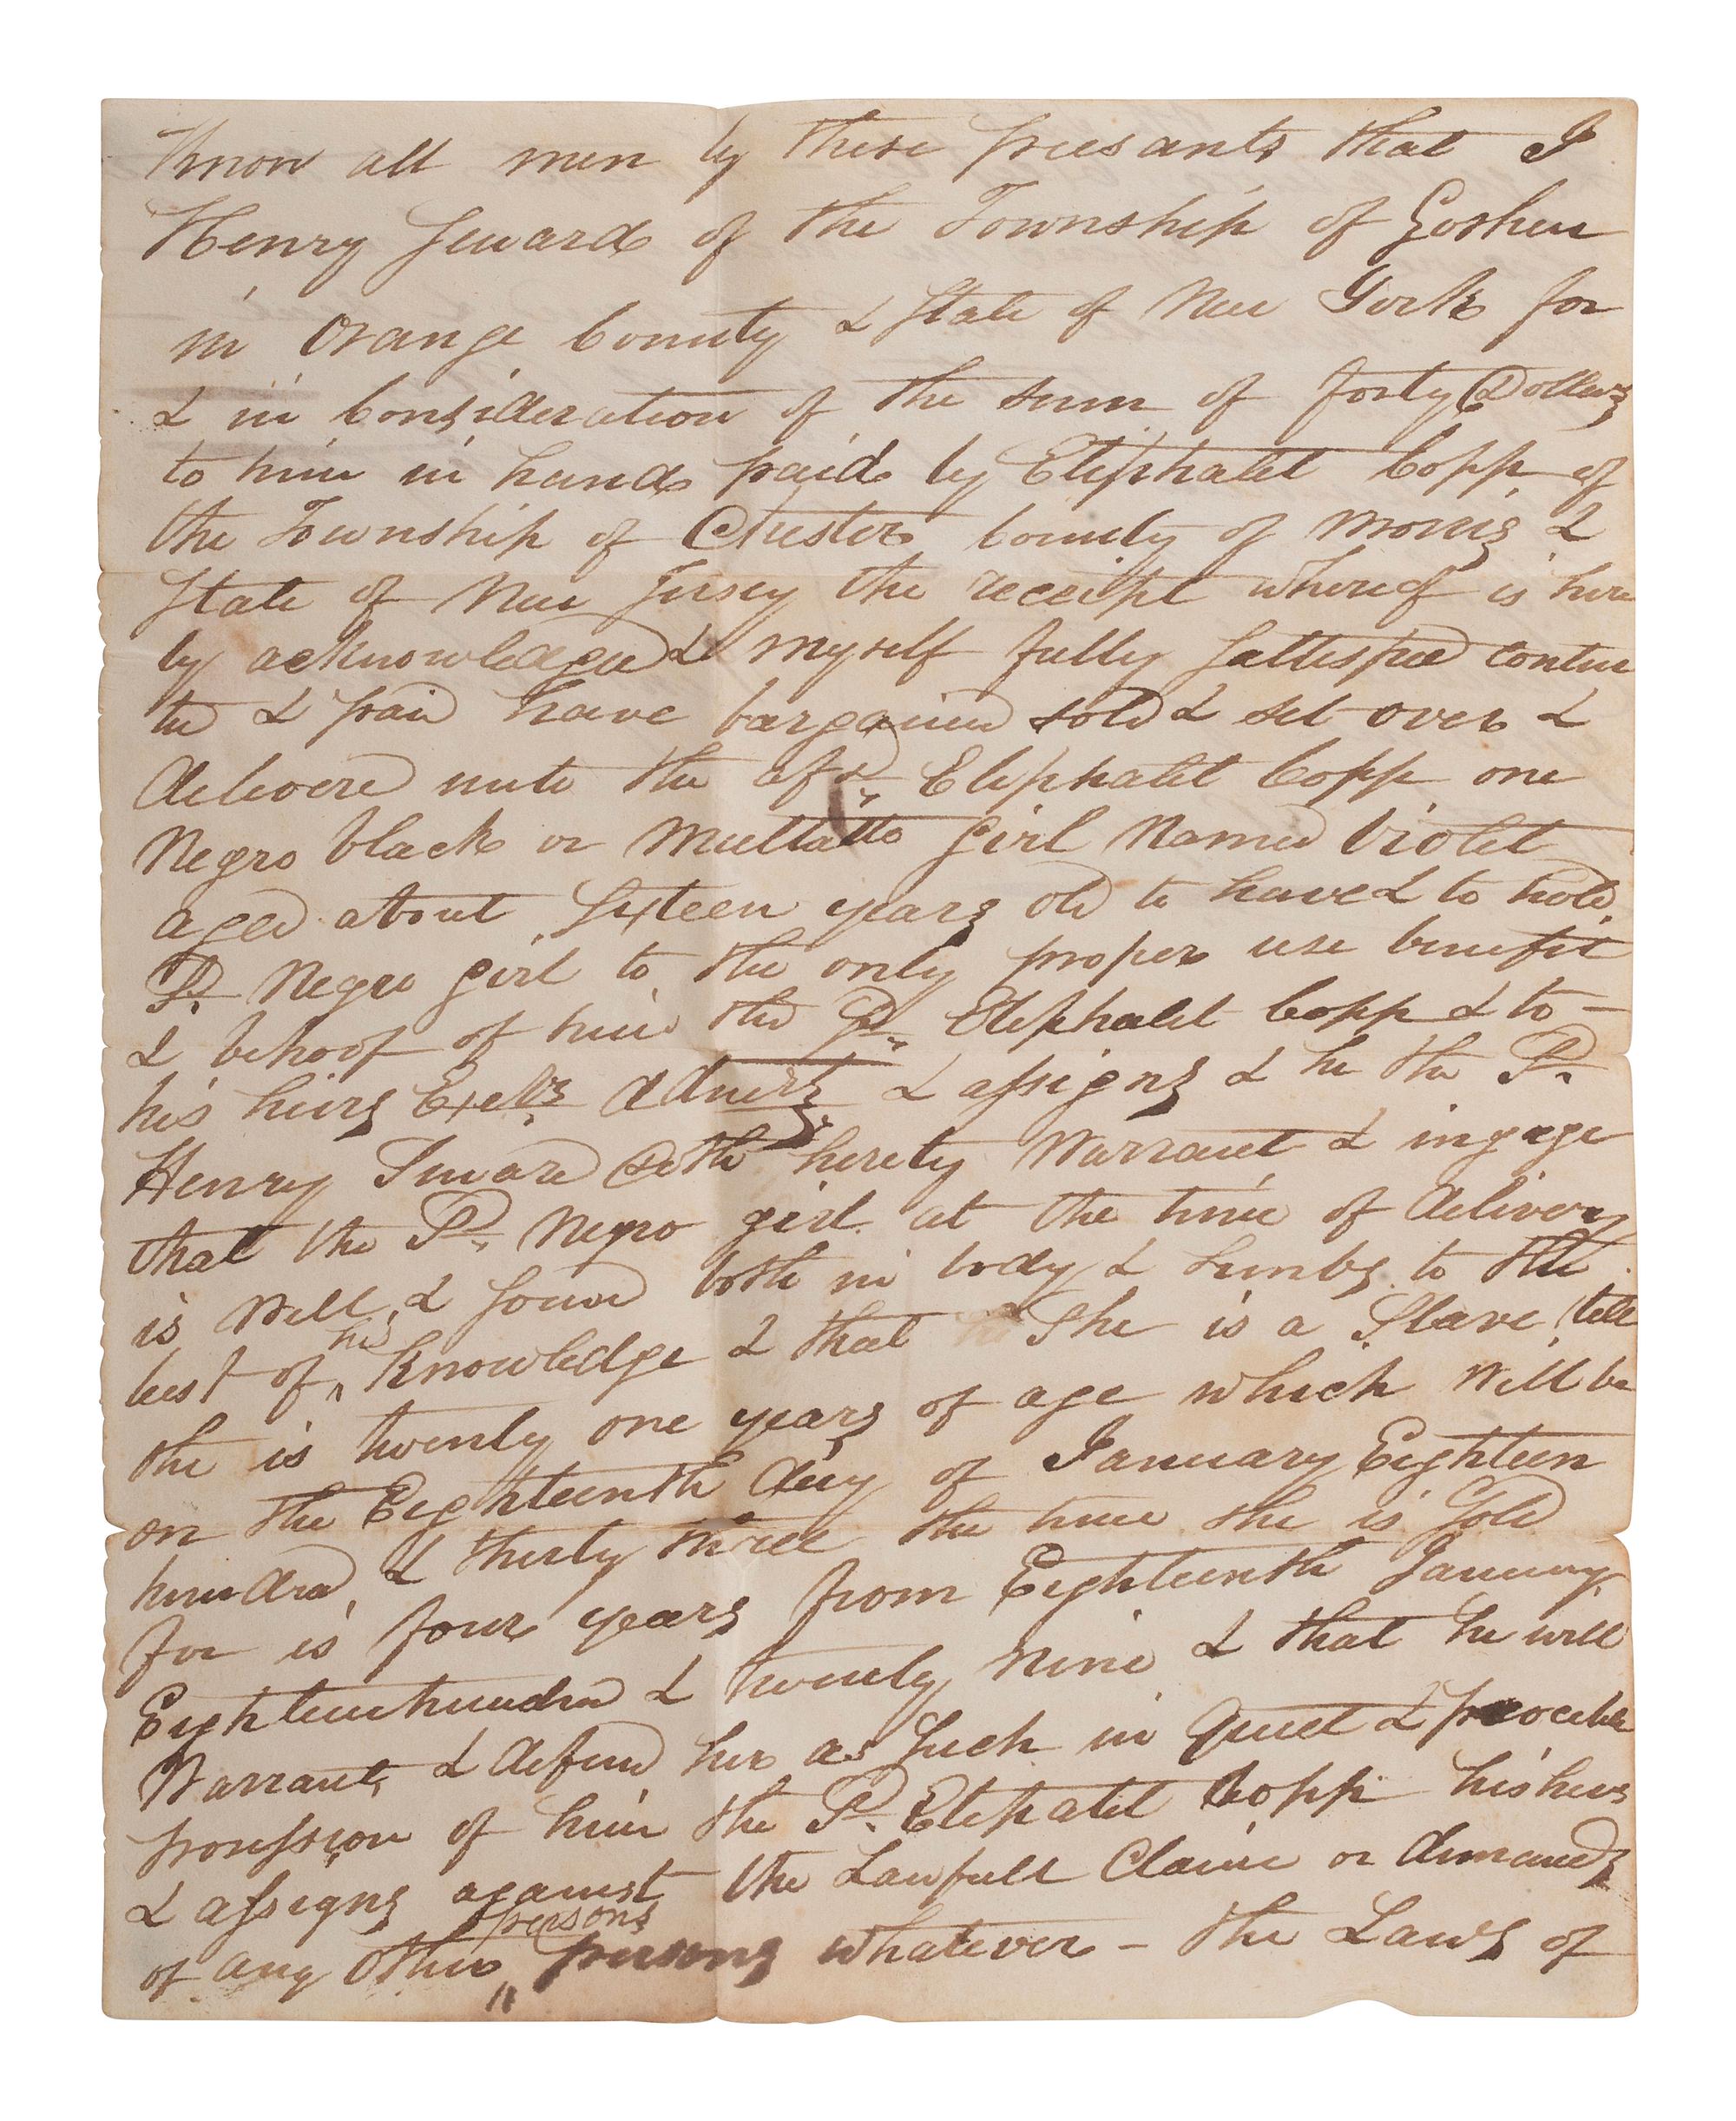 Know all men by these presants that I
Henry Seward of the Township of Goshen
in Orange County & State of New York for
& in Consideration of the sum of forty Dollars
to him in hand paid by Eliphalet Copp of
the Township of Chester County of Morris &
State of New Jersey the receipt whereof is here
by acknowledged & myself fully Sattisfied conten
ted & paid have bargained sold & set over &
delivered unto the afsd. Eliphalet Copp one
Negro black or Mullatto Girl Named Violet
aged about Sixteen years old to have & to hold
Sd. Negro girl to the only proper use benefit
& behoof of him the Sd. Eliphalet Copp & to -
his heirs Exetrs. Admrs. & assigns & he the Sd.
Henry Seward doth hereby Warrant & ingage
that the Sd. Negro girl at the time of delivery
is Well & Sound both in body & Limbs to the
best of his Knowledge & that She is a Slave till
she is twenty one years of age which Will be
on the Eighteenth day of January Eighteen
hundred & thirty three the time she is Sold
for is four years from Eighteenth January
Eighteenhundred & twenty Nine & that he will
Warrant & defend her as Such in Quiet &
possession of him the Sd. Eliphalet Copp his heirs
& assigns against the Lawfull Claim or demands
of any other persons whatever - the Laws of